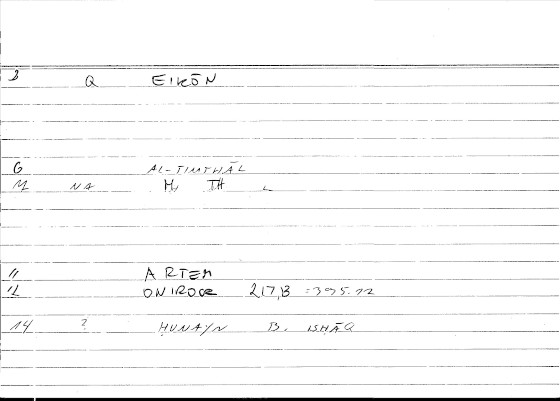 3 Q EIKŌN
6 AL-TIMTHĀL
M NA M TH L
11 ARTEM
12 ONIROCR 217,13 = 395.12
14 ? ḤUNAYN B. ISḤĀQ